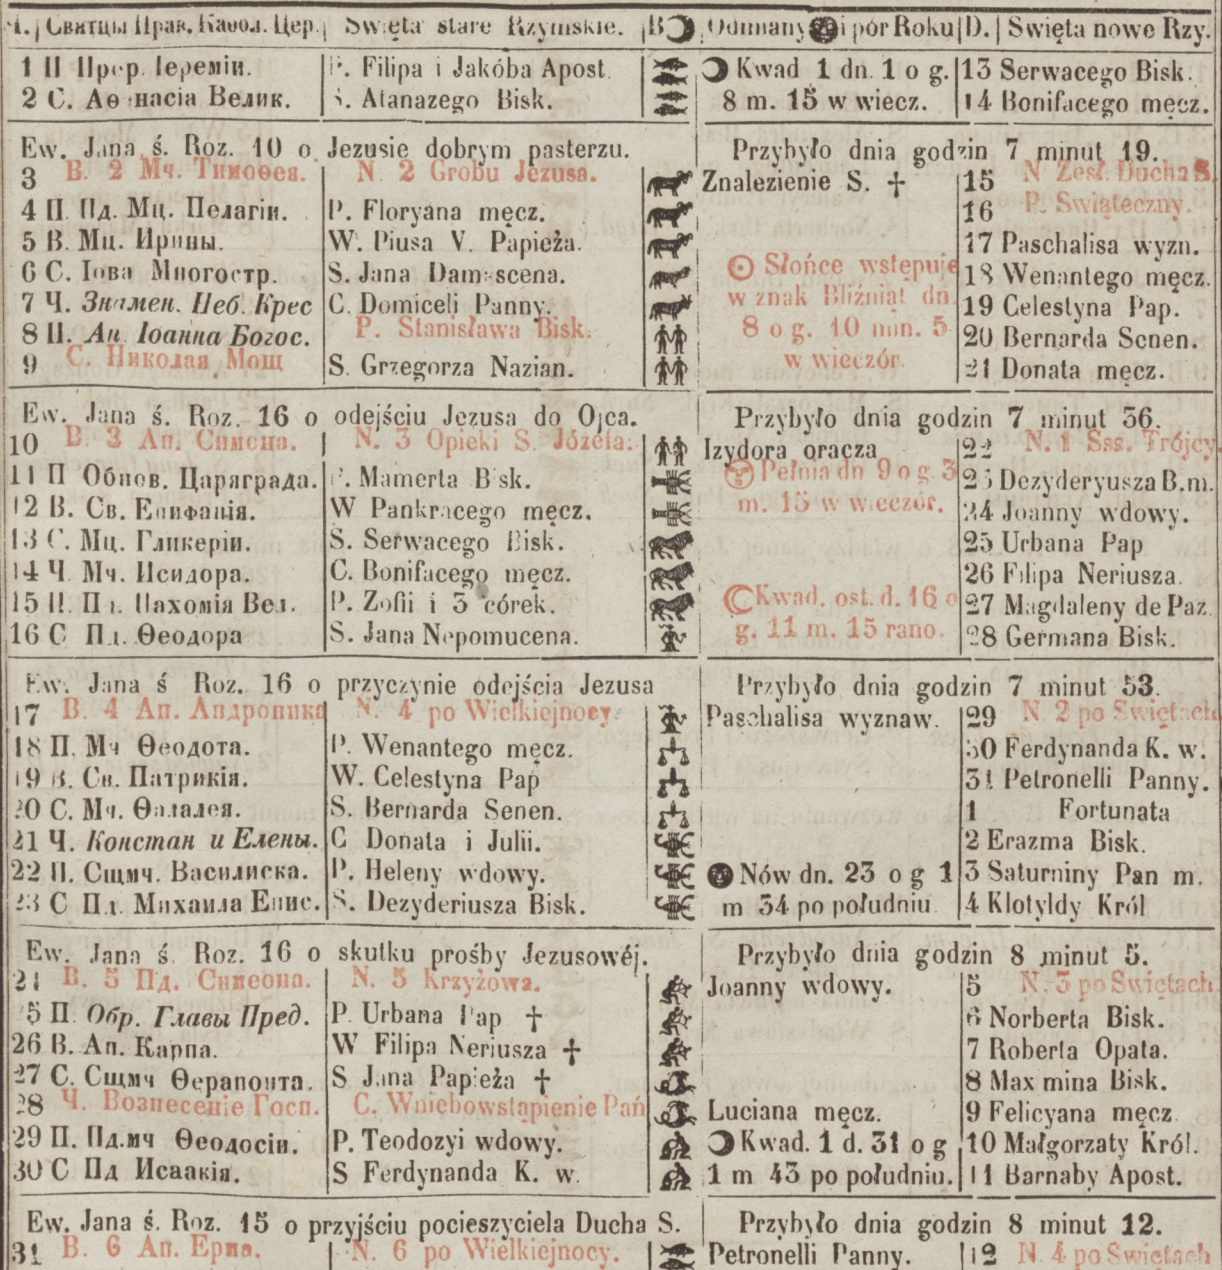 Святцы Прав. Каѳол. Цер. | Święta stare Rzymskie. | Odmiany i pór Roku | D. | Święta nowe Rzy.
1 П Прор. Іереміи. | P. Filipa i Jakóba Apost. | Kwad 1 dn. 1 o g. | 13 Serwacego Bisk.
2 С. Аѳанасія Велик. | S. Atanazego Bisk. | 8 m. 15 w wiecz. | 14 Bonifacego męcz.
Ew. Jana ś. Roz. 10 o Jezusie dobrym pasterzu. | Przybyło dnia godzin 7 minut 19.
3 В. 2 Мч. Тимоѳея. | N. 2 Grobu Jezusa. | Znalezienie S. † | 15 N Zesł. Ducha S.
4 П. Пд. Мц. Пелагіи. | P. Floryana męcz. | 16 P. Swiąteczny.
5 В. Мц. Ирины. | W. Piusa V. Papieża. | 17 Paschalisa wyzn.
6 С. Іова Многостр. | S. Jana Damascena. | Słońce wstępuje | 18 Wenantego męcz.
7 Ч. Знамен. Неб. Крес | C. Domiceli Panny. | w znak Bliźniąt dn. | 19 Celestyna Pap.
8 П. Ап. Іоанна Богос. | P. Stanisława Bisk. | 8 o g. 10 min. 5 | 20 Bernarda Senen.
9 С. Николая Мощ | S. Grzegorza Nazian. | w wieczór. | 21 Donata męcz.
Ew. Jana ś. Roz. 16 o odejściu Jezusa do Ojca. | Przybyło dnia godzin 7 minut 36.
10 В. 3 Ап. Симона. | N. 3 Opieki S. Józefa. | Izydora oracza | 22 N. 1 Sss. Trójcy
11 П Обнов. Цараграда. | P. Mamerta Bisk. | Pełnia dn 9 o g. 3 | 23 Dezyderyusza B.m.
12 В. Св. Епифанія. | W Pankracego męcz. | m. 15 w wieczór. | 24 Joanny wdowy.
13 С. Мц. Гликеріи. | S. Serwacego Bisk. | 25 Urbana Pap
14 Ч. Мч. Исидора. | C. Bonifacego męcz. | 26 Filipa Neriusza.
15 П. Пд. Пахомія Вел. | P. Zofii i 3 córek. | Kwad. ost. d. 16 o | 27 Magdaleny de Paz.
16 С Пд. Ѳеодора | S. Jana Nepomucena. | g. 11 m. 15 rano. | 28 Germana Bisk.
Ew. Jana ś Roz. 16 o przyczynie odejścia Jezusa | Przybyło dnia godzin 7 minut 53.
17 В. 4 Ап. Андроника | N. 4 po Wielkiejnocy. | Paschalisa wyznaw. | 29 N. 2 po Swiętach
18 П. Мч Ѳеодота. | P. Wenantego męcz. | 30 Ferdynanda K. w.
19 В. Св. Патрикія. | W. Celestyna Pap | 31 Petronelli Panny.
20 С. Мч. Ѳалалея. | S. Bernarda Senen. | 1 Fortunata
21 Ч. Констан и Елены. | C Donata i Julii. | 2 Erazma Bisk.
22 П. Сщмч. Василиска. | P. Heleny wdowy. | Nów dn. 23 o g 1 | 3 Saturniny Pan m.
23 С Пд. Михаила Епис. | S. Dezyderiusza Bisk. | m 34 po południu | 4 Klotyldy Król
Ew. Jana ś Roz. 16 o skutku prośby Jezusowéj. | Przybyło dnia godzin 8 minut 5.
24 В. 5 Пд. Симеона. | N. 5 Krzyżowa. | Joanny wdowy. | 5 N. 3 po Swiętach
5 П Обр. Главы Пред. | P. Urbana Pap † | 6 Norberta Bisk.
26 В. Ап. Карпа. | W Filipa Neriusza † | 7 Roberta Opata.
27 С. Сщмч Ѳерапонта. | S Jana Papieża † | 8 Maxmina Bisk.
28 Ч. Вознесеніе Госп. | C. Wniebowstąpienie Pań | Luciana męcz. | 9 Felicyana męcz
29 П. Пд.мч Ѳеодосіи. | P. Teodozyi wdowy. | Kwad. 1 d. 31 o g | 10 Małgorzaty Król.
30 С Пд Исаакія. | S Ferdynanda K. w. | 1 m 43 po południu. | 11 Barnaby Apost.
Ew. Jana ś. Roz. 15 o przyjściu pocieszyciela Ducha S. | Przybyło dnia godzin 8 minut 12.
31 В. 6 Ап. Ерма. | N. 6 po Wielkiejnocy. | Petronelli Panny. | 12 N. 4 po Swiętach